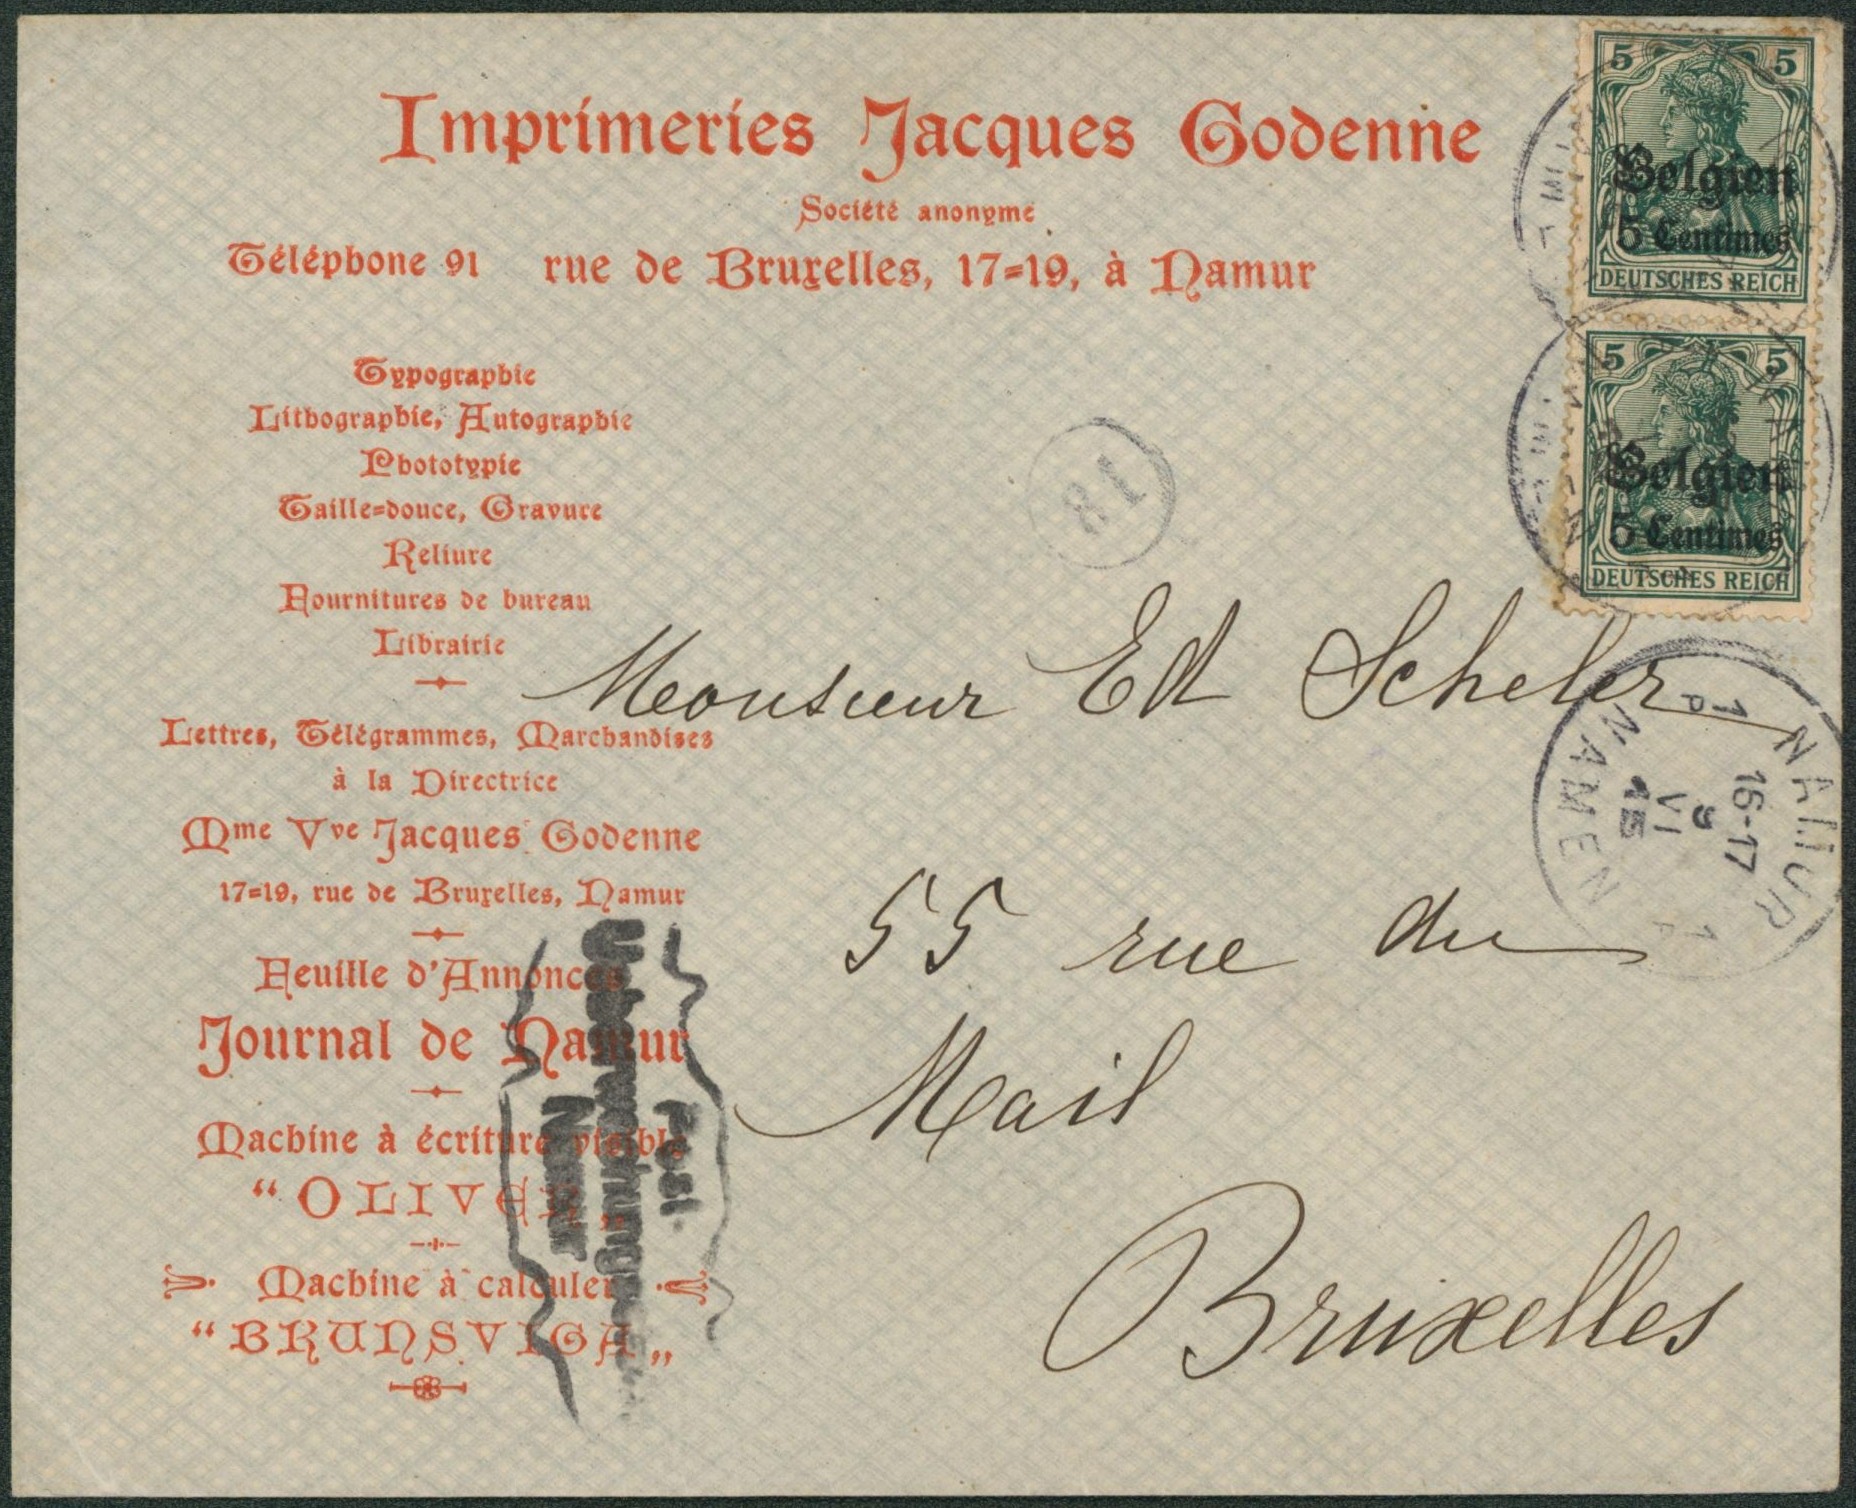 Imprimeries Jacques Godenne
Société anonyme
Téléphone 91 rue de Bruxelles, 17=19, à Namur
5 5
Belgien
5 Centimes
DEUTSCHES REICH
5 5
Belgien
5 Centimes
DEUTSCHES REICH
Typographie
Lithographie, Autographie
Phototypie
Taille=douce, Gravure
Reliure
Fournitures de bureau
Librairie
Lettres, Télégrammes, Marchandises
à la Directrice
Mme Vve Jacques Godenne
17=19, rue de Bruxelles, Namur
Feuille d'Annonces
Journal de Namur
Machine à écriture visible
“OLIVER„
Machine à calculer
“BRUNSVIGA„
18
Monsieur Ed Scheler
55 rue du
Mail
Bruxelles
NAMUR 1
16-17
9
VI
15
NAMEN 1
Post-
Ueberwachung
Namur